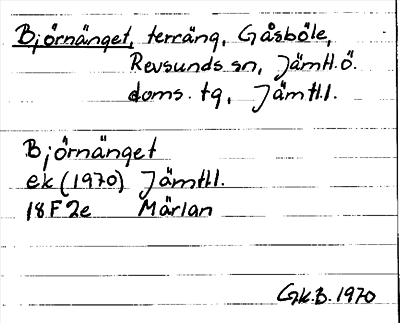 Björnänget, terräng, Gåsböle,
Revsunds sn, Jämtl.Ö.
doms. tg, Jämtl.l.
Björnänget
ek (1970) Jämtl.l.
18F2e Märlan
G.K.B. 1970